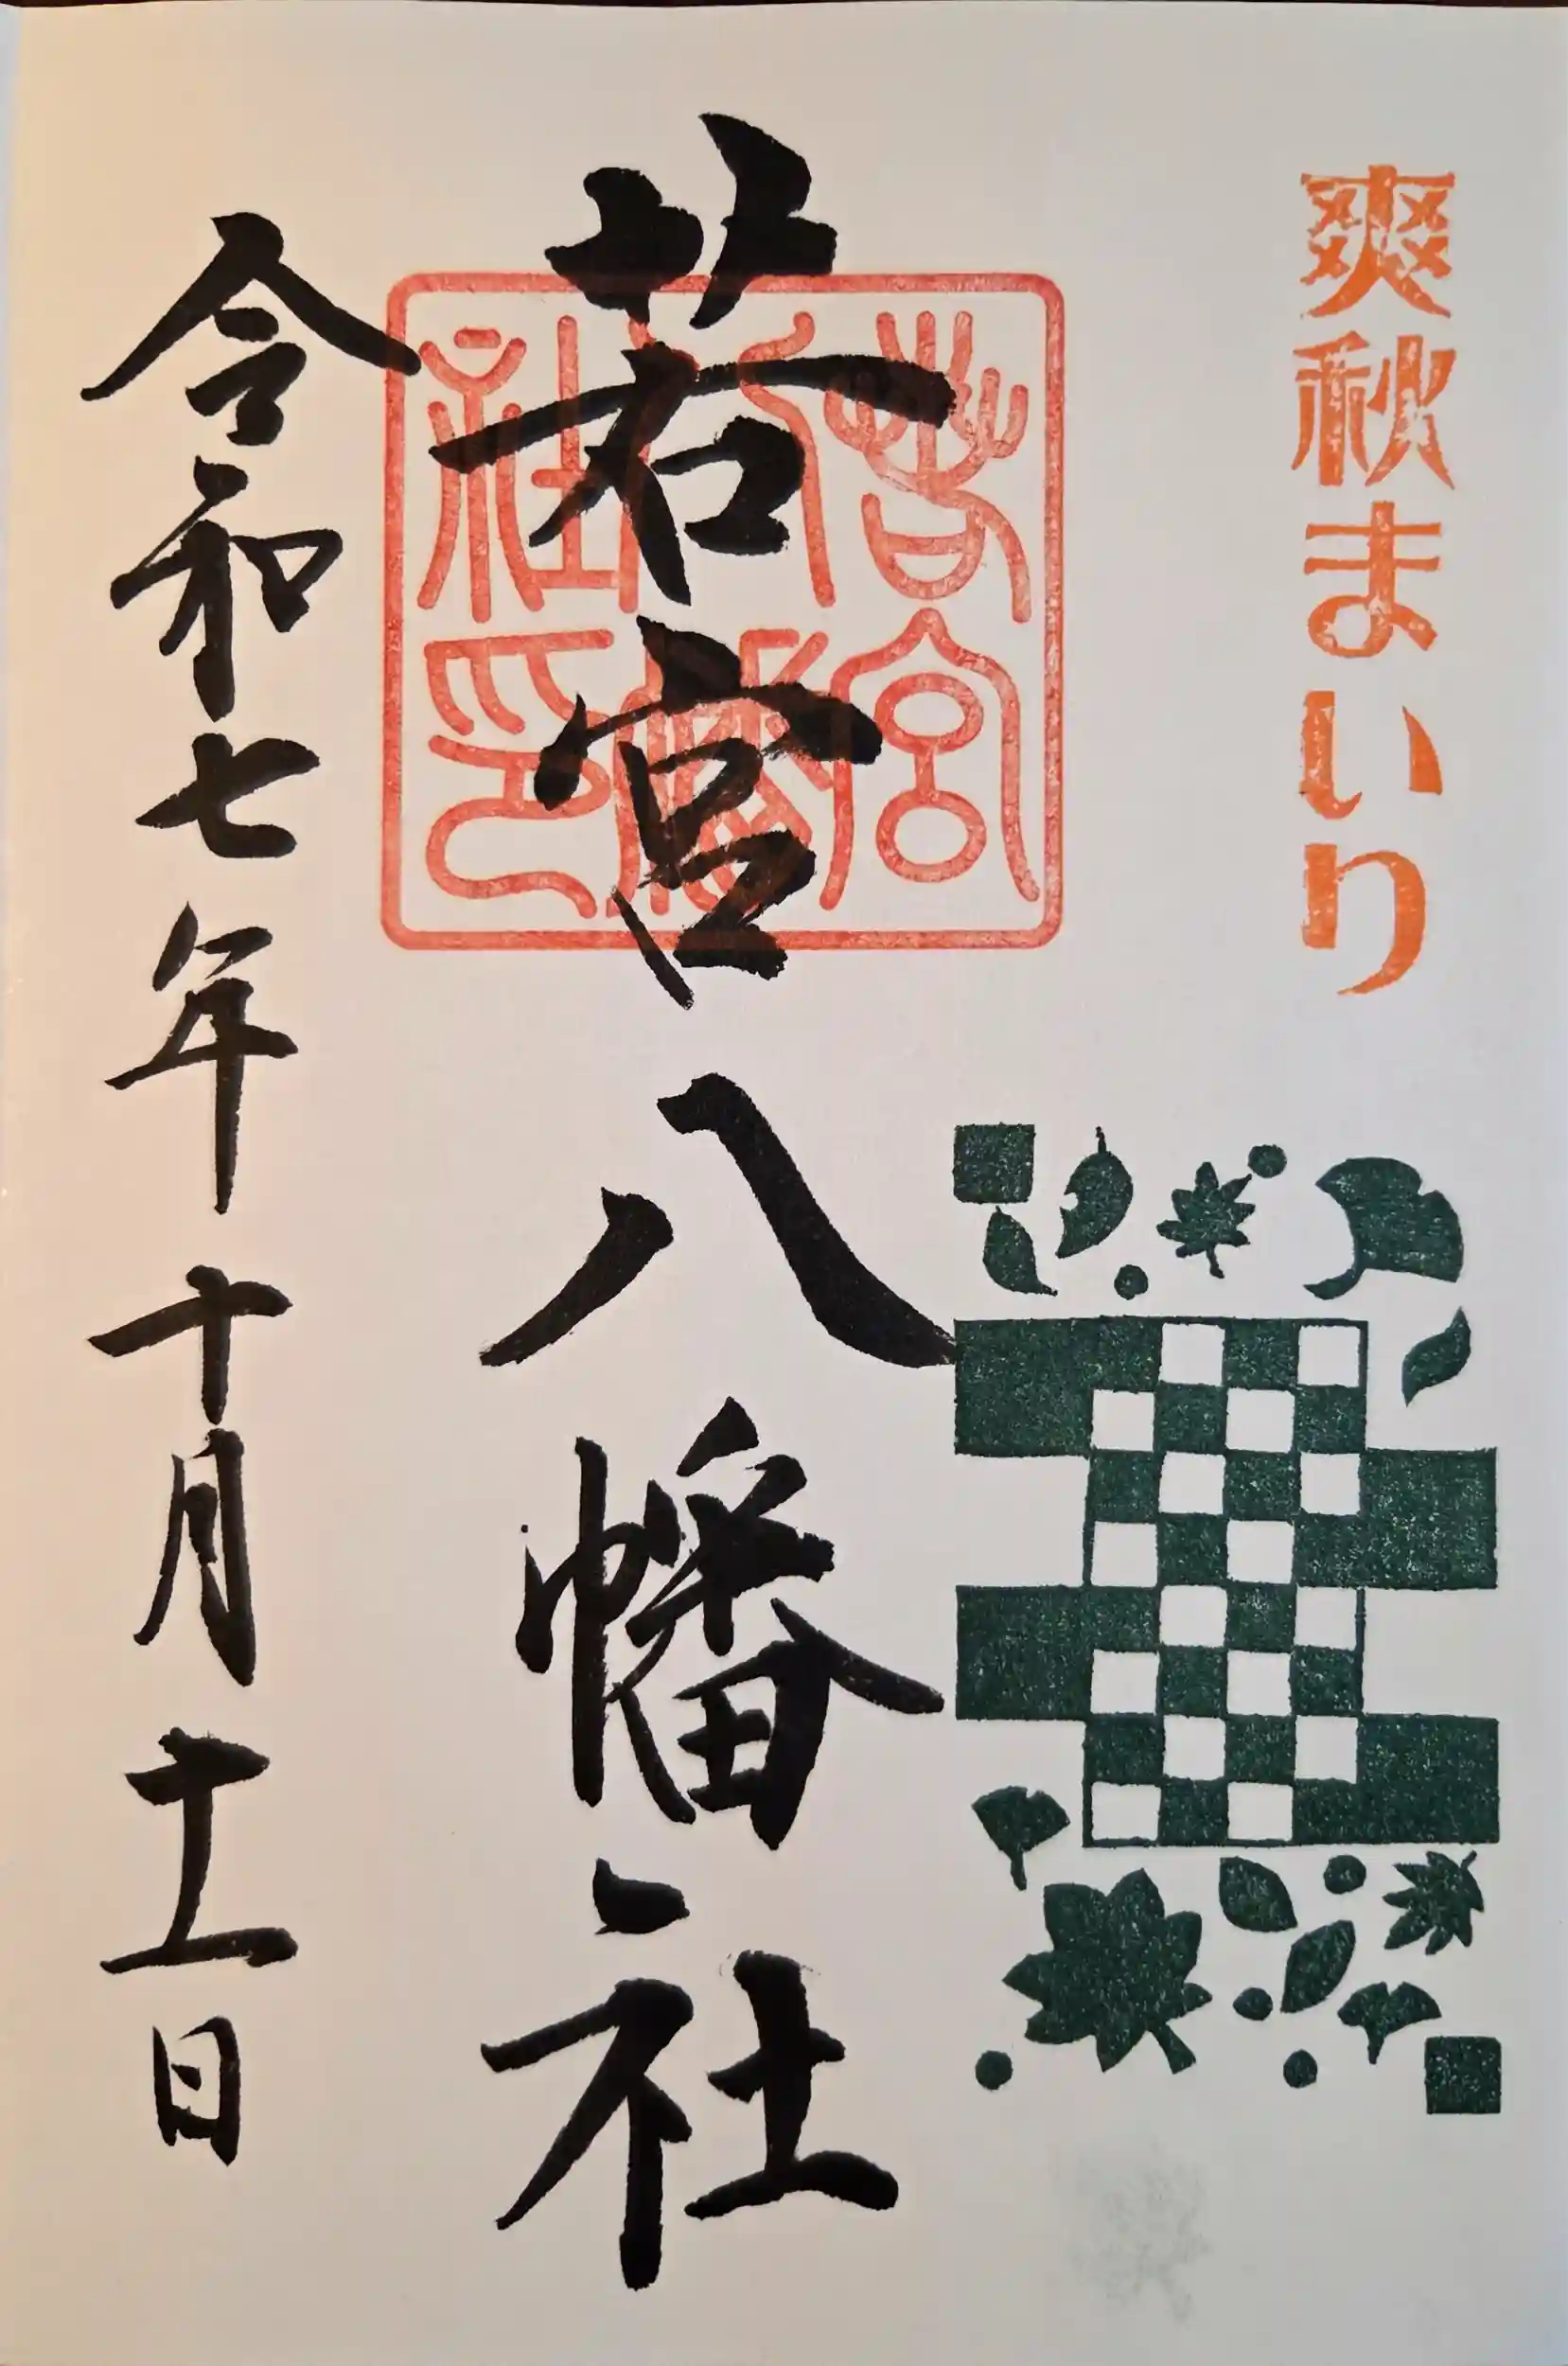 爽秋まいり
若宮八幡社
若宮
八幡
社印
令和七年十月十一日